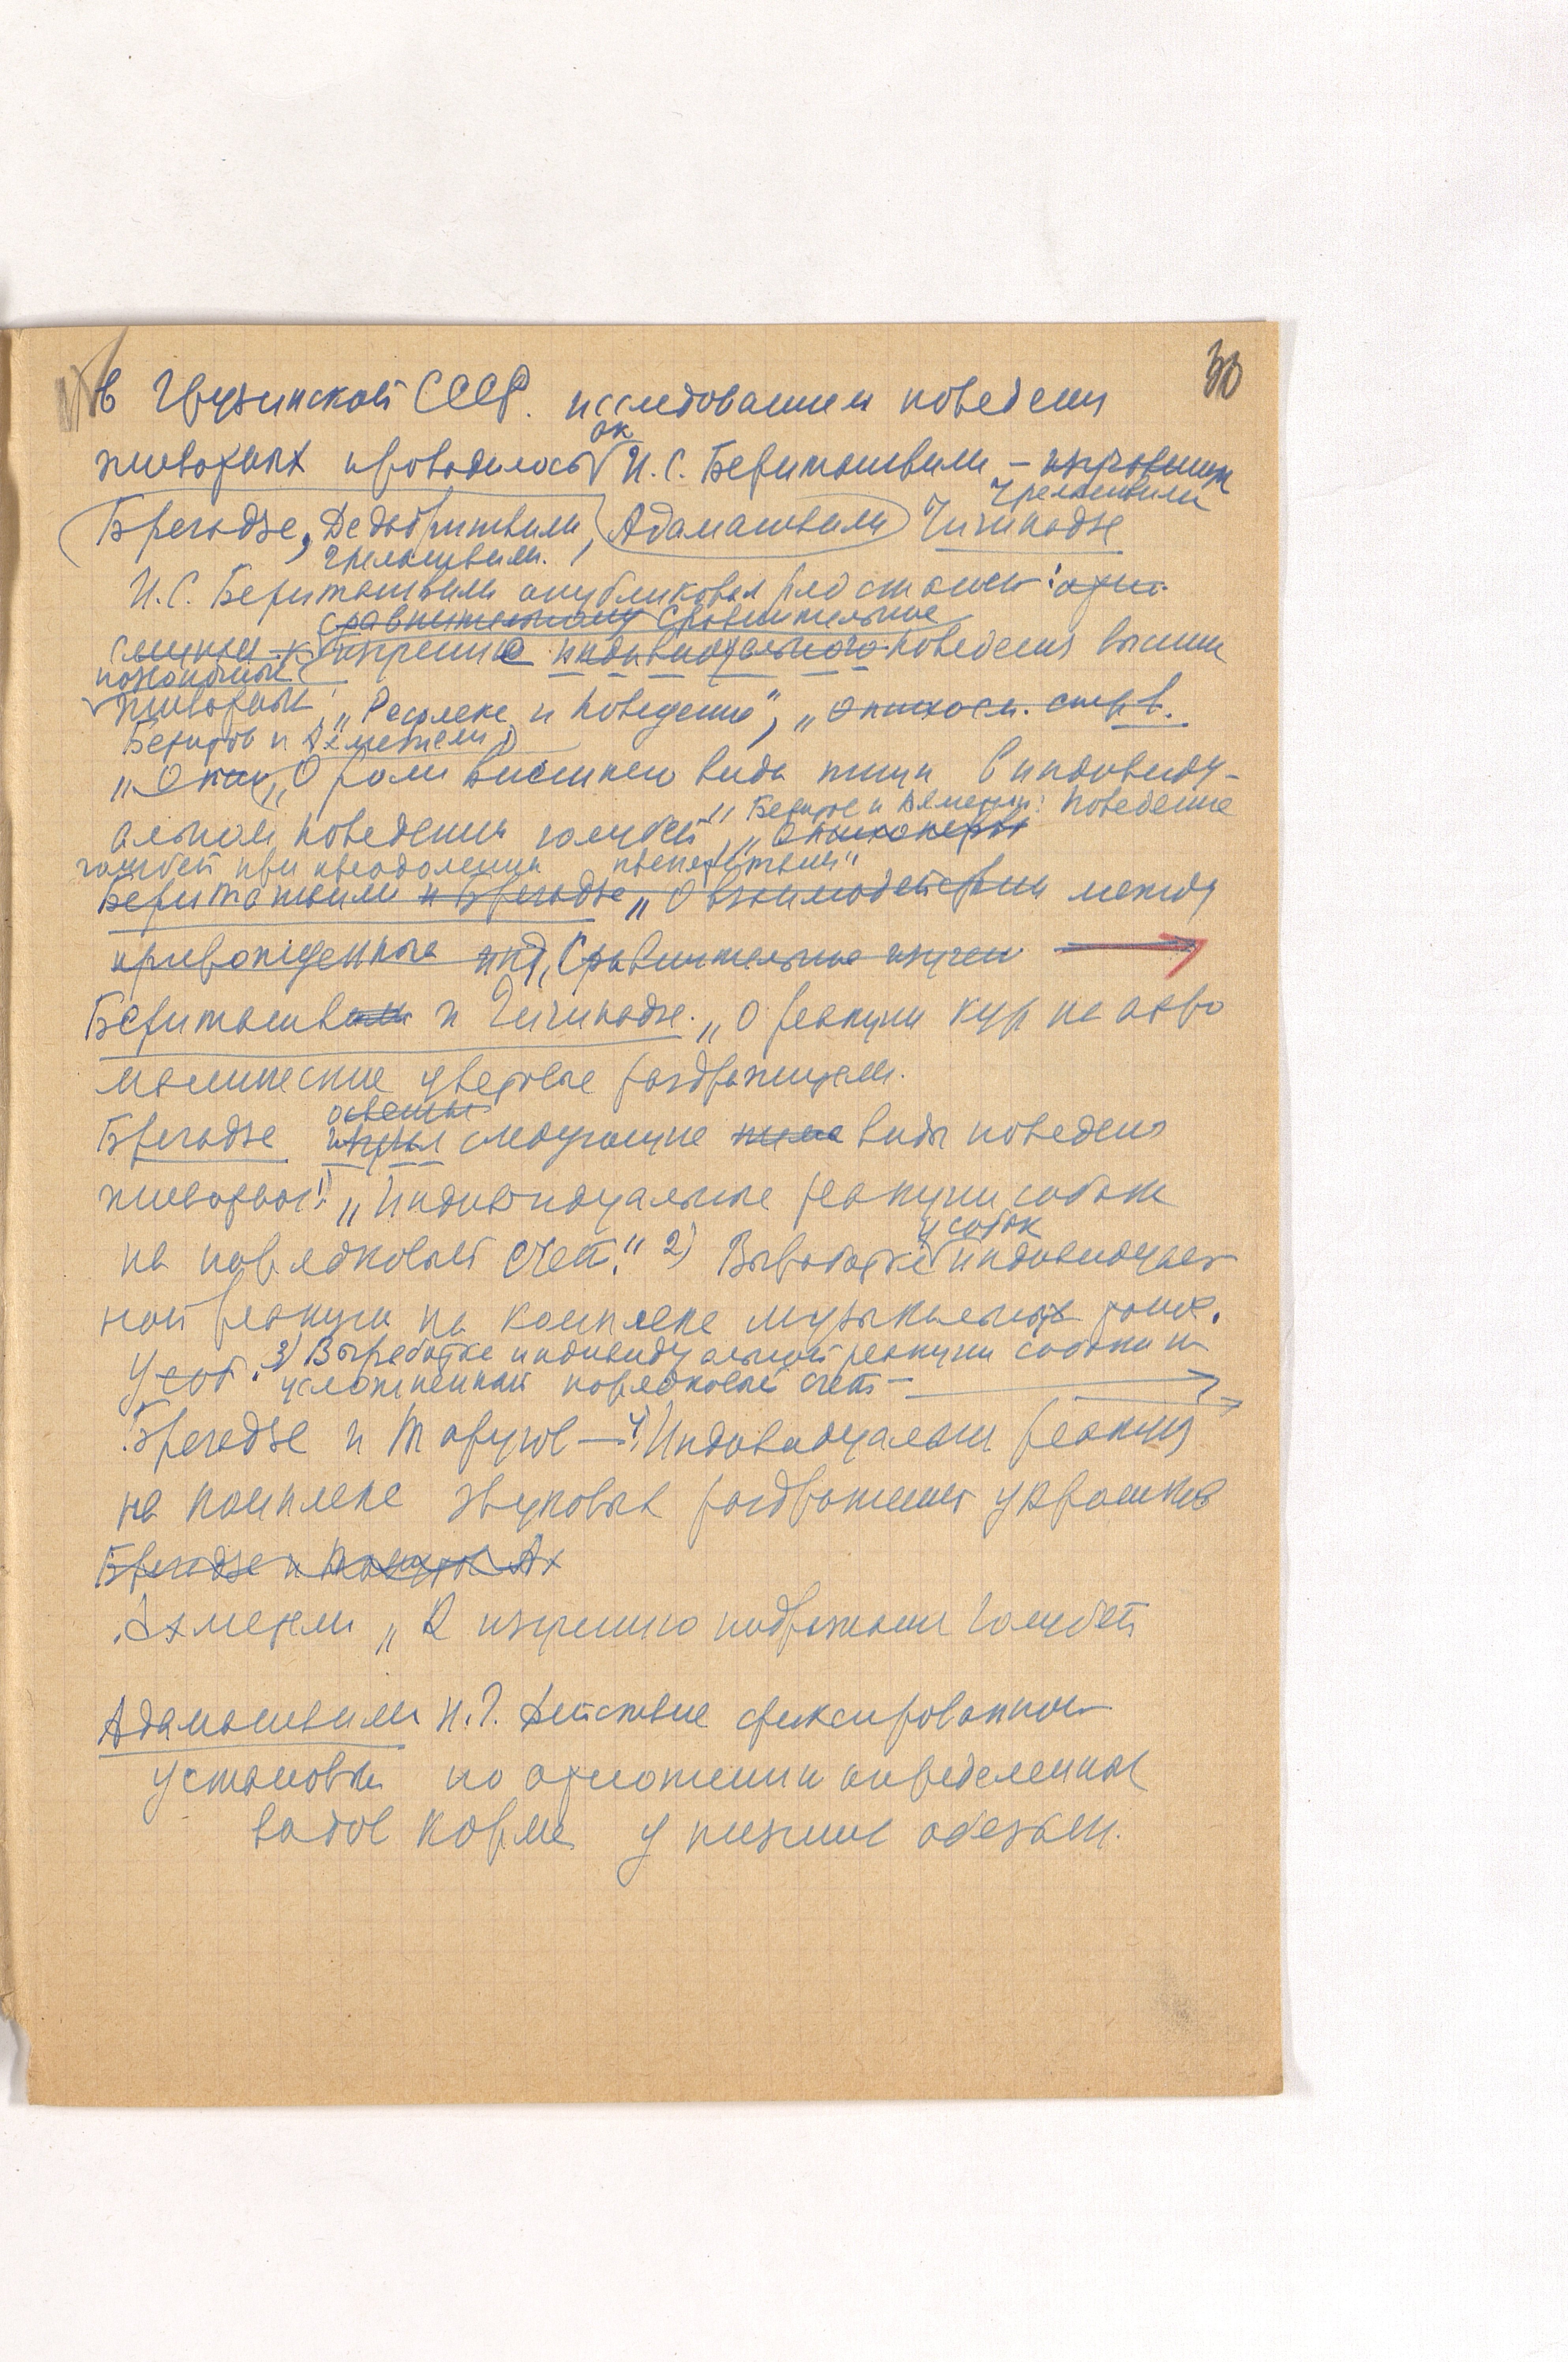 30
В Грузинской ССР. исследованием поведени
животных проводилось ак И.С. Бериташвили –
Брегадзе, Дедабришвили, Адамашвили Чичинадзе
И.С. Бериташвили опубликовал ряд статей:
Сравнительному Сравнительное
изучение индивидуального поведения высших
позвоночных
животных, „Рефлекс и поведение",
Беритов и Ахметели
„О роли внешнего вида пищи в индивиду-
альном поведении голубей", Беритов и Ахметели: Поведение
голубей при преодолении препятствий"
Бериташвили и Брегадзе „О взаимодействии между
прирожденные инд, Сравнительное изучен
Бериташвили и Чичинадзе. „О реакции кур на ахро
матические цветовые раздражители.
Брегадзе изучал следующие виды поведения
животных: 1) „Индивидуальные реакции собаки
на порядковый счет." 2) Выработке у собак индивидуаль
ной реакции на комплекс музыкальных
У соб. 3) Выработке индивидуальной реакции собаки на
усложненный порядковый счет –
Брегадзе и Тавутов – 4) Индивидуальная реакция
на комплекс звуковых раздражений у кроликов
Брегадзе и Ах
Ахметели „К изучению подражания голубей
Адамашвили Н.Г. Действие фиксированной
установки по отношению определенных
видов корма у низших обезьян.